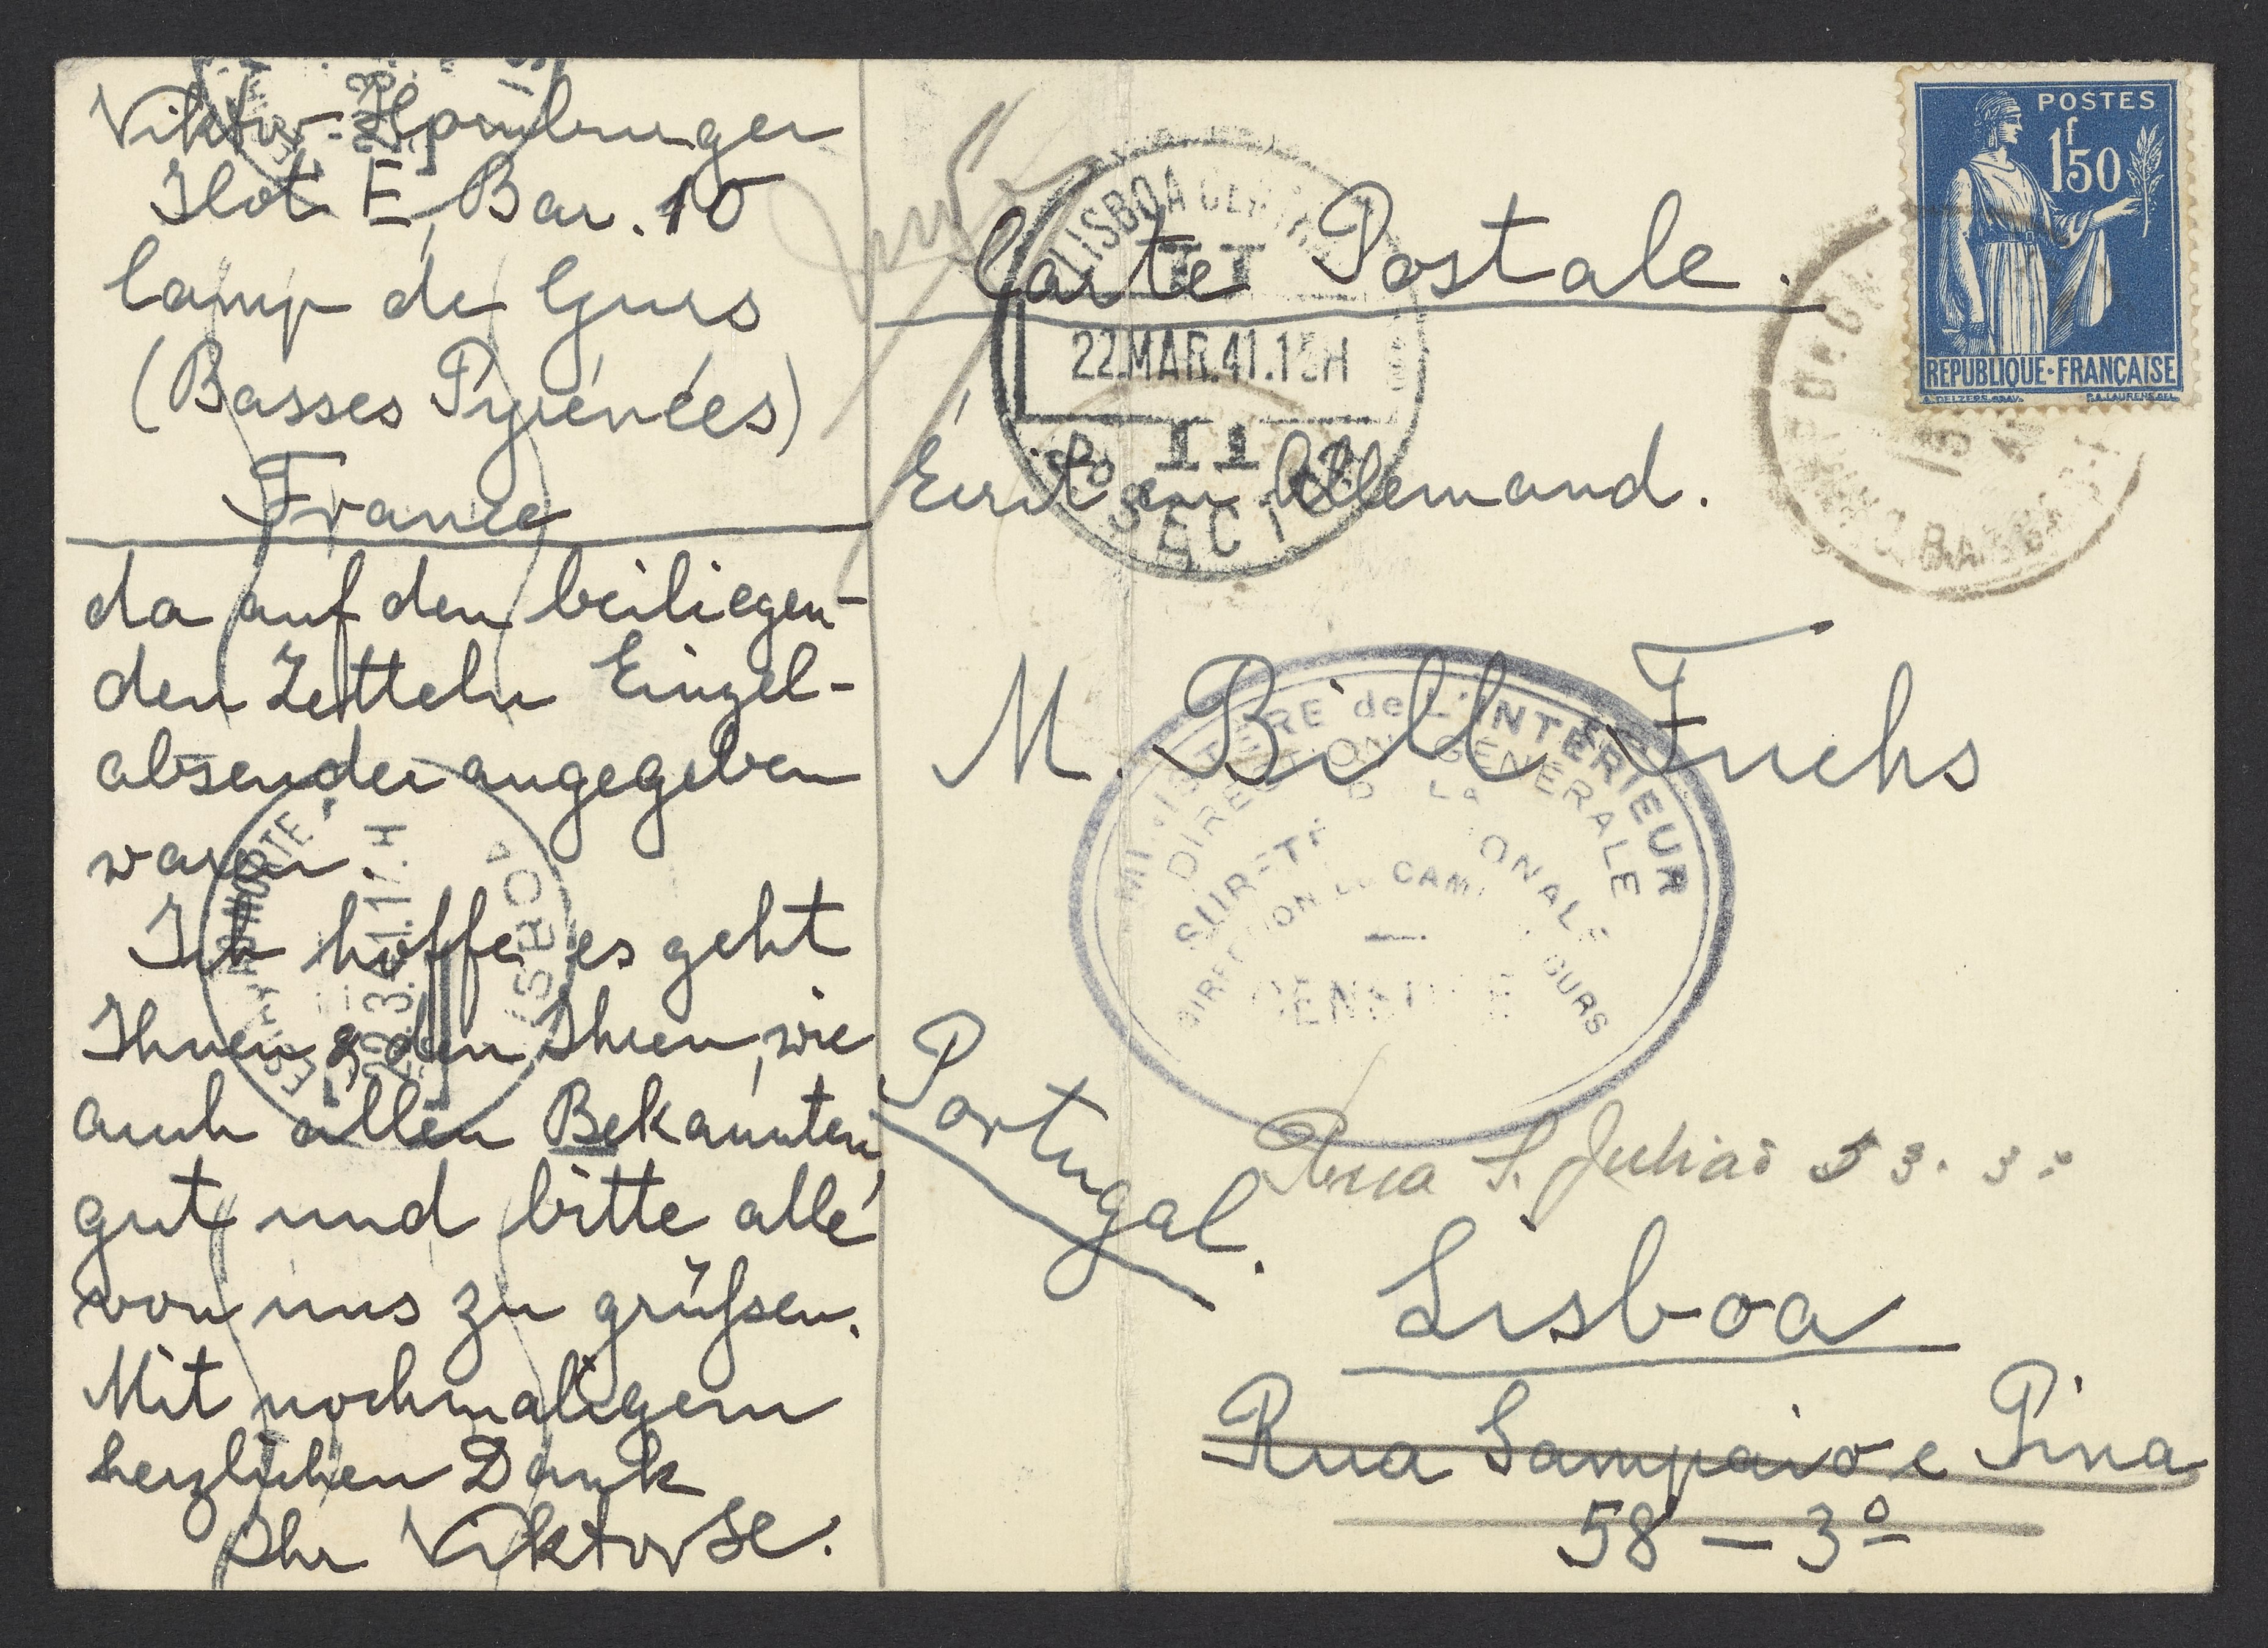 Viktor Homburger
Ilot E, Bar. 10
Camp de Gurs
(Basses Pyrénées)
France
da auf den beiliegen-
den Zetteln Einzel-
absender angegeben
waren.
Ich hoffe, es geht
Ihnen & den Ihren, wie
auch allen Bekannten,
gut und bitte alle
von uns zu grüßen.
Mit nochmaligem
herzlichen Dank
Ihr Viktor
Carte Postale.
Écrit en Allemand.
M. Bill Fuchs
Portugal.
Rua S. Julião 53. 3º
Lisboa
Rua Sampaio e Pina
58 — 3º
POSTES
1f50
REPUBLIQUE·FRANÇAISE
LISBOA CENTRAL
22.MAR.41.15H
SECÇÃO
MINISTÈRE de L'INTÉRIEUR
DIRECTION GÉNÉRALE
DE La
SURETÉ NATIONALE
CENSURE
LISBOA
NORTE